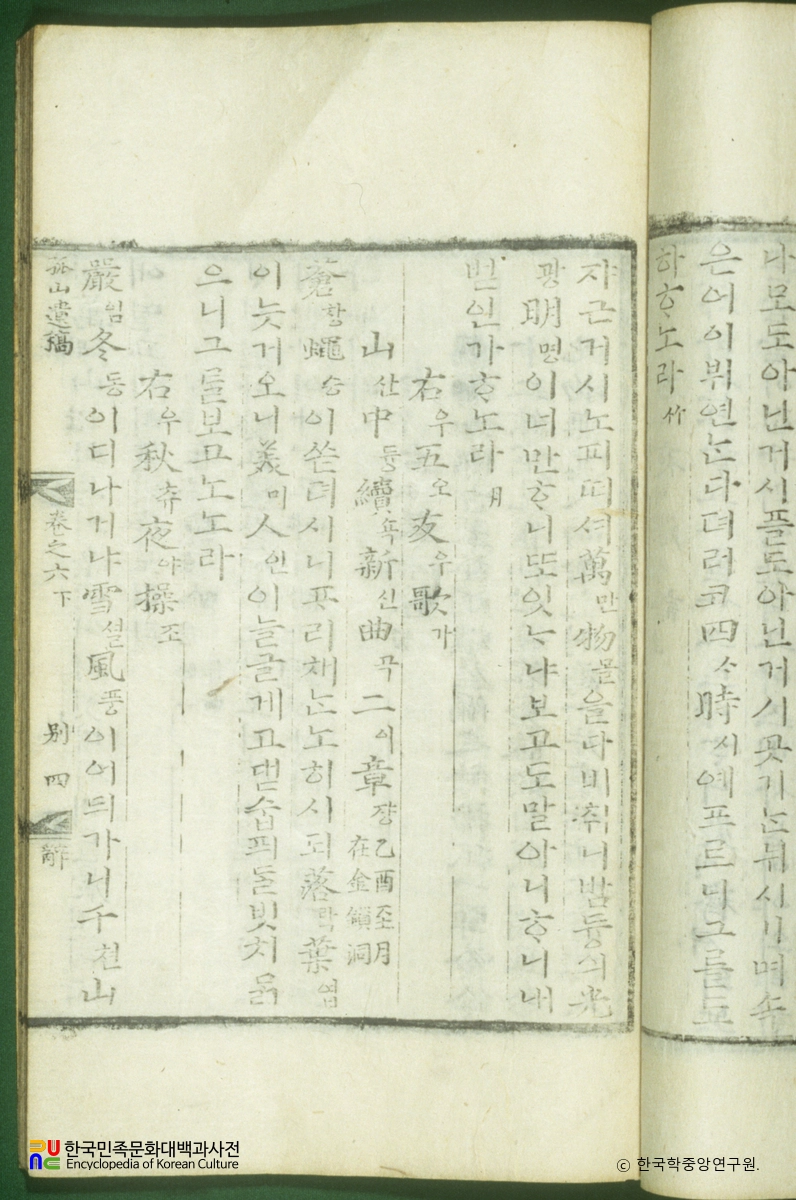 나모도아닌거시플도아닌거시곳기ᄂᆞᆫ뉘시기며속
은어이뷔연ᄂᆞᆫ다뎌러코四ᄉᆞ時시예프르니그를됴
하ᄒᆞ노라 竹
쟈근거시노피떠셔萬만物믈을다비취니밤듕의光
광明명이너만ᄒᆞ니또잇ᄂᆞ냐보고도말아니ᄒᆞ니내
벋인가ᄒᆞ노라 月
右우五오友우歌가
山산中듕續쇽新신曲곡二이章쟝 乙酉至月
在金鎖洞
蒼창蠅승이쓷뎌시니ᄑᆞ리채ᄂᆞᆫ노히시되落락葉엽
이늣거오니美미人인이늘글게고댇숩픠ᄃᆞᆯ빗치ᄆᆞᆰ
으니그를보고노노라
右우秋츄夜야操조
嚴엄冬동이디나거냐雪셜風풍이어듸가니千쳔山
孤山遺稿 卷之六下 別 四
한국민족문화대백과사전
Encyclopedia of Korean Culture
ⓒ 한국학중앙연구원.